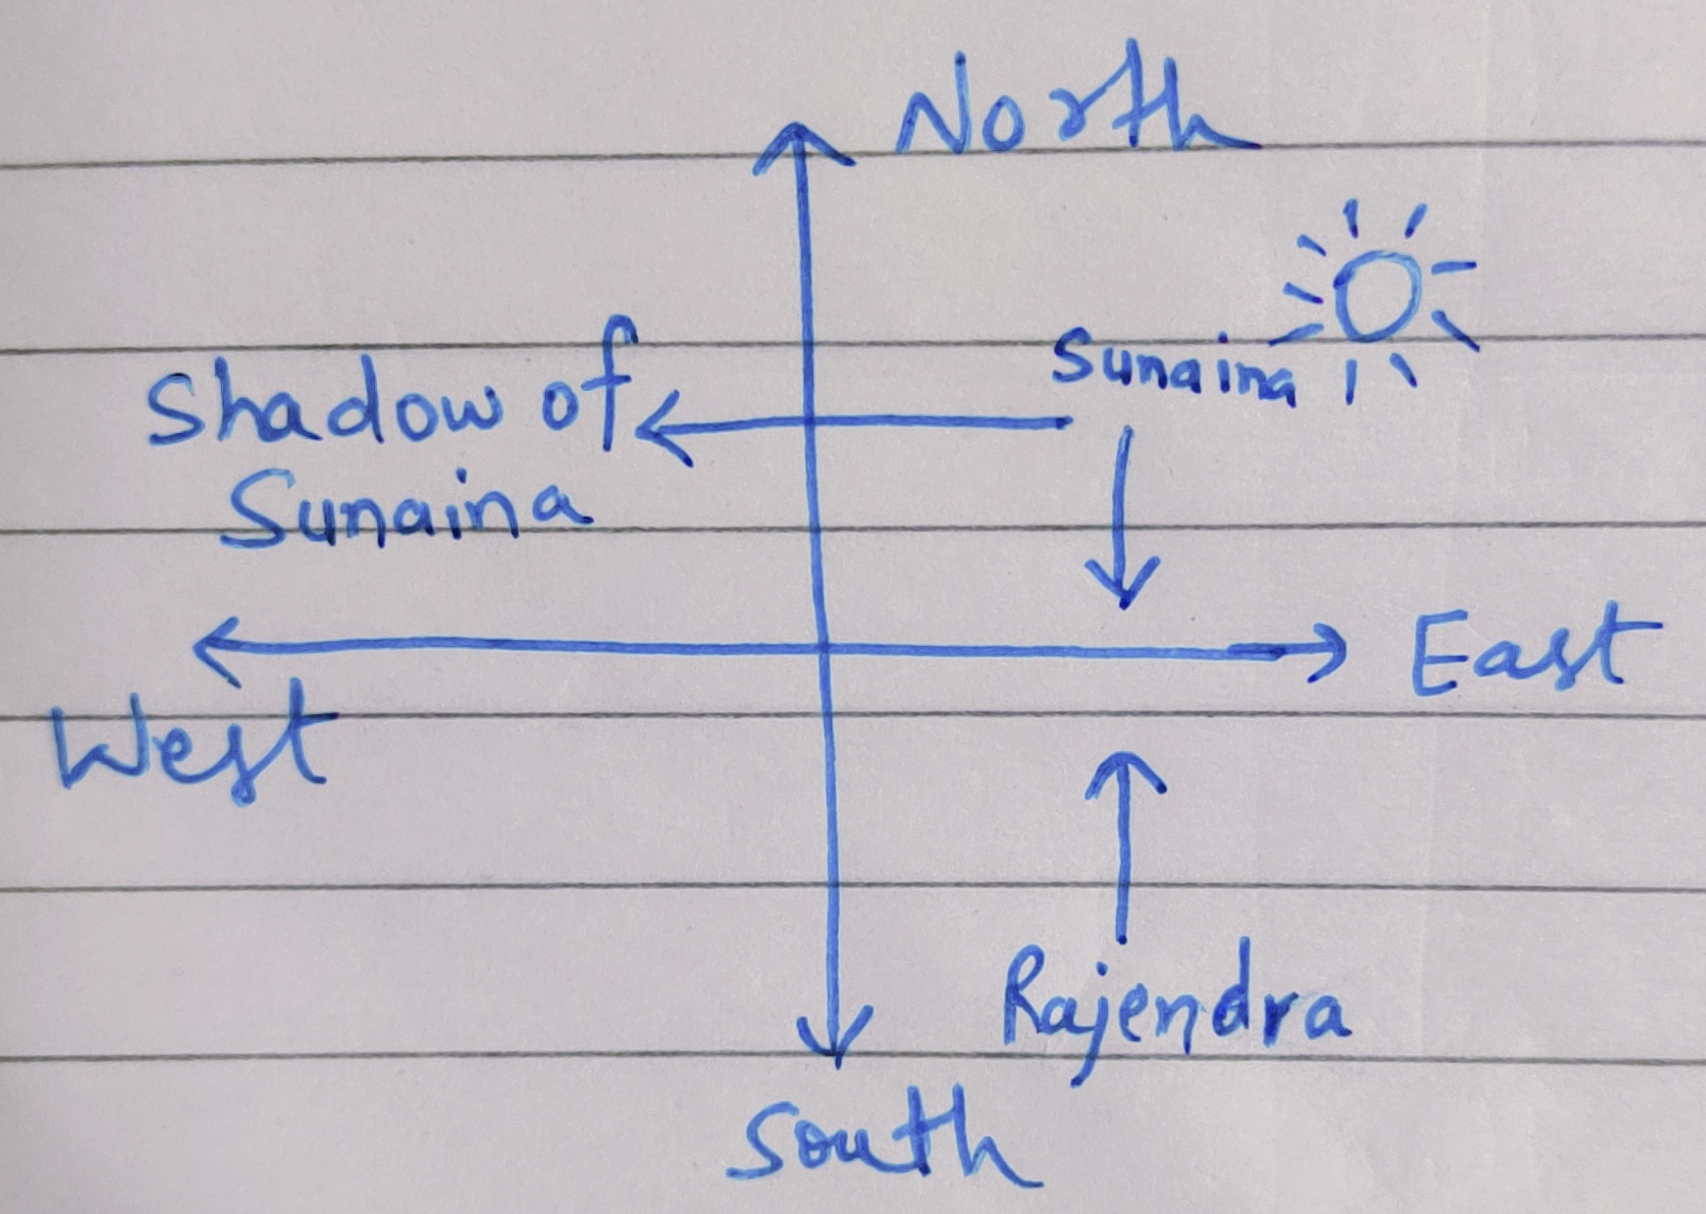 North
Sunaina
Shadow of
Sunaina
East
West
Rajendra
South